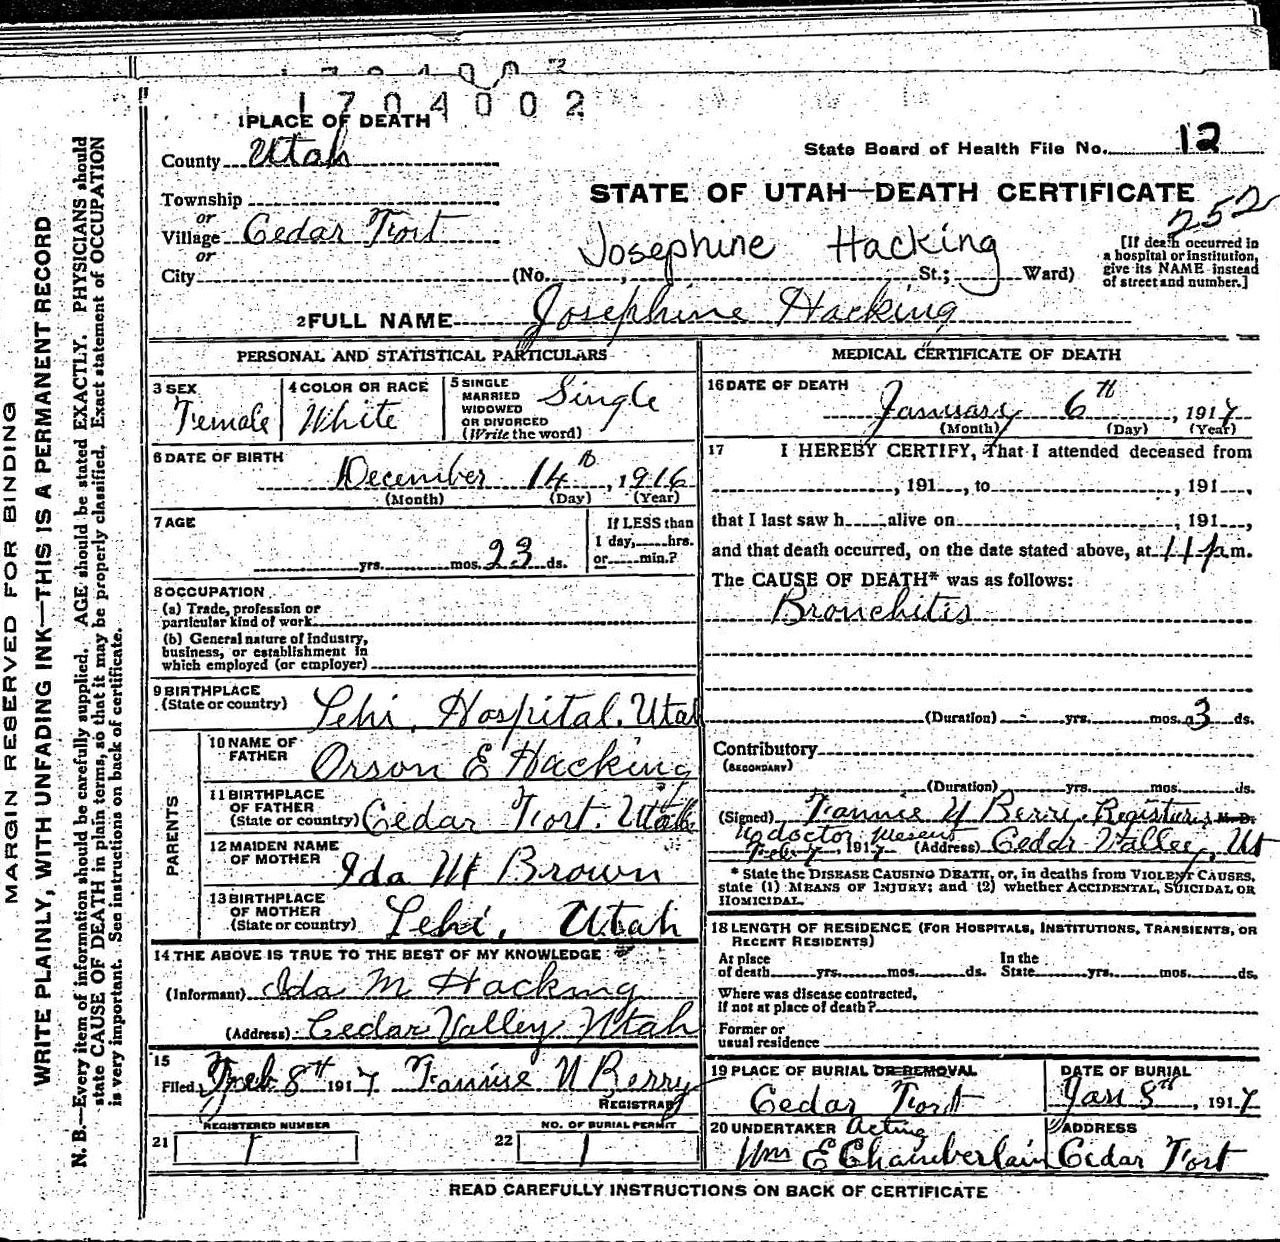 1704002
1 PLACE OF DEATH
County Utah
State Board of Health File No. 12
Township
STATE OF UTAH—DEATH CERTIFICATE
252
or
Village Cedar Fort
or
City
Josephine Hacking
(No. , St.; Ward)
[If death occurred in
a hospital or institution,
give its NAME instead
of street and number.]
2 FULL NAME Josephine Hacking
PERSONAL AND STATISTICAL PARTICULARS
3 SEX
Female
4 COLOR OR RACE
White
5 SINGLE
MARRIED
WIDOWED
OR DIVORCED
(Write the word)
Single
6 DATE OF BIRTH
December 14th, 1916
(Month) (Day) (Year)
7 AGE
yrs. mos. 23 ds.
If LESS than
1 day, hrs.
or min.?
8 OCCUPATION
(a) Trade, profession or
particular kind of work
(b) General nature of Industry,
business, or establishment in
which employed (or employer)
9 BIRTHPLACE
(State or country) Lehi, Hospital, Utah
PARENTS
10 NAME OF
FATHER Orson E Hacking
11 BIRTHPLACE
OF FATHER
(State or country) Cedar Fort. Utah
12 MAIDEN NAME
OF MOTHER Ida M Brown
13 BIRTHPLACE
OF MOTHER
(State or country) Lehi, Utah
14 THE ABOVE IS TRUE TO THE BEST OF MY KNOWLEDGE
(Informant) Ida M Hacking
(Address) Cedar Valley Utah
15
Filed Feb 8th 1917 Fannie N Berry
REGISTRAR
REGISTERED NUMBER
21 1
NO. OF BURIAL PERMIT
22 1
MEDICAL CERTIFICATE OF DEATH
16 DATE OF DEATH
January 6th, 1917
(Month) (Day) (Year)
17 I HEREBY CERTIFY, That I attended deceased from
, 191 , to , 191 ,
that I last saw h alive on , 191 ,
and that death occurred, on the date stated above, at 11 p.m.
The CAUSE OF DEATH* was as follows:
Bronchitis
(Duration) yrs. mos. 3 ds.
Contributory
(SECONDARY)
(Duration) yrs. mos. ds.
(Signed) Fannie N Berry, Registrar M.D.
no doctor present
Feb 7, 1917 (Address) Cedar Valley, Ut
* State the DISEASE CAUSING DEATH, or, in deaths from VIOLENT CAUSES,
state (1) MEANS OF INJURY; and (2) whether ACCIDENTAL, SUICIDAL OR
HOMICIDAL.
18 LENGTH OF RESIDENCE (FOR HOSPITALS, INSTITUTIONS, TRANSIENTS, OR
RECENT RESIDENTS)
At place
of death yrs. mos. ds.
In the
State yrs. mos. ds.
Where was disease contracted,
if not at place of death?
Former or
usual residence
19 PLACE OF BURIAL OR REMOVAL
Cedar Fort
DATE OF BURIAL
Jan 8th, 1917
20 UNDERTAKER Acting
Wm E Chamberlain
ADDRESS
Cedar Fort
READ CAREFULLY INSTRUCTIONS ON BACK OF CERTIFICATE
MARGIN RESERVED FOR BINDING
WRITE PLAINLY, WITH UNFADING INK—THIS IS A PERMANENT RECORD
N. B.—Every item of information should be carefully supplied. AGE should be stated EXACTLY. PHYSICIANS should
state CAUSE OF DEATH in plain terms, so that it may be properly classified. Exact statement of OCCUPATION
is very important. See instructions on back of certificate.